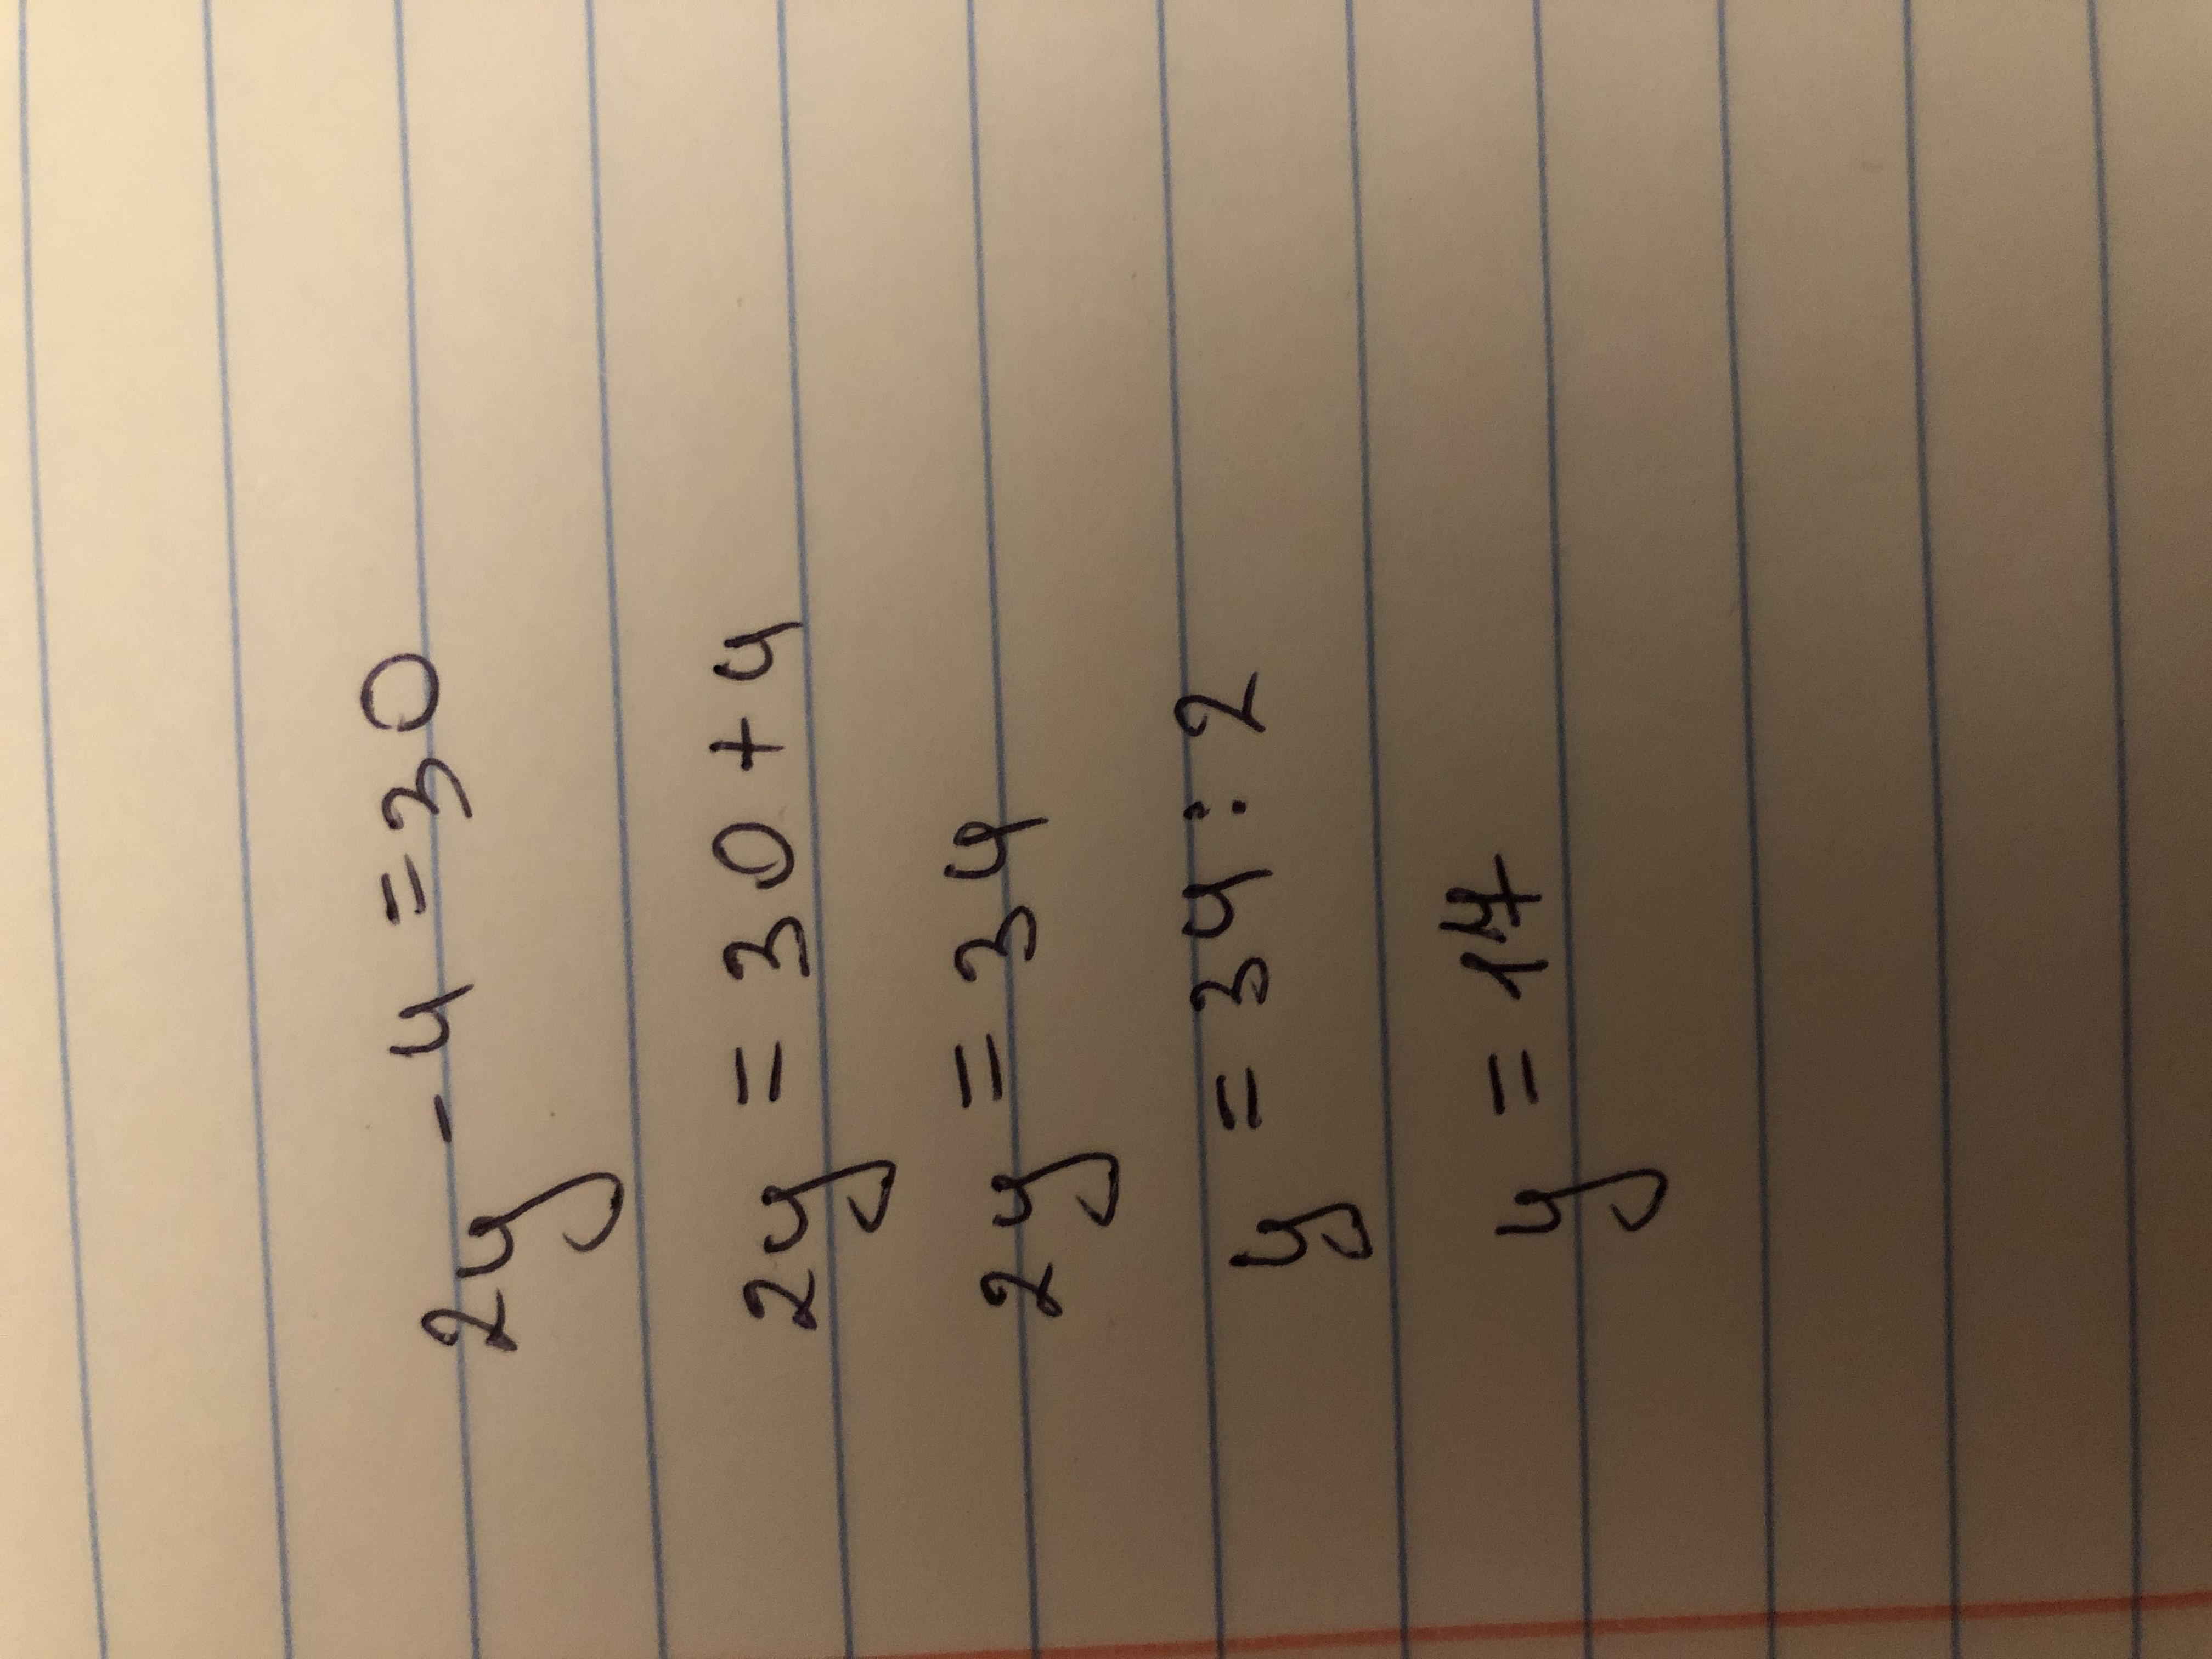 2y - 4 = 30
2y = 30 + 4
2y = 34
y = 34 : 2
y = 17